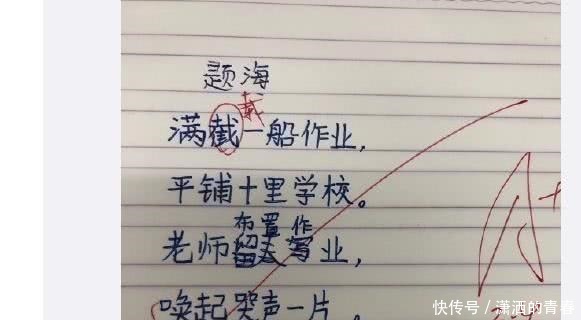 题海
载
满截一船作业，
平铺十里学校。
布置作
老师写业，
唤起哭声一片.
A+
快传号／潇洒的青春